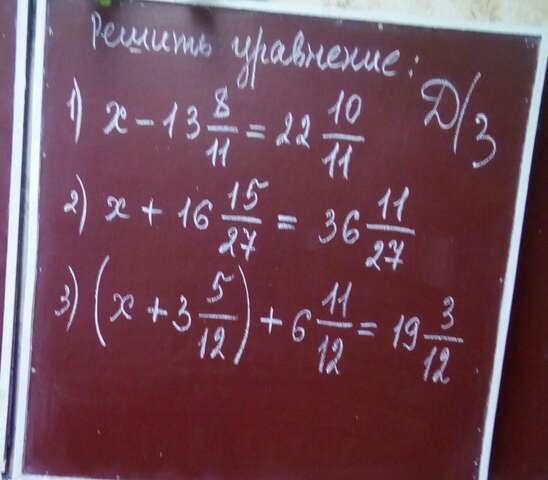 Решить уравнение:
Д/з
1) x - 13 8/11 = 22 10/11
2) x + 16 15/27 = 36 11/27
3) (x + 3 5/12) + 6 11/12 = 19 3/12